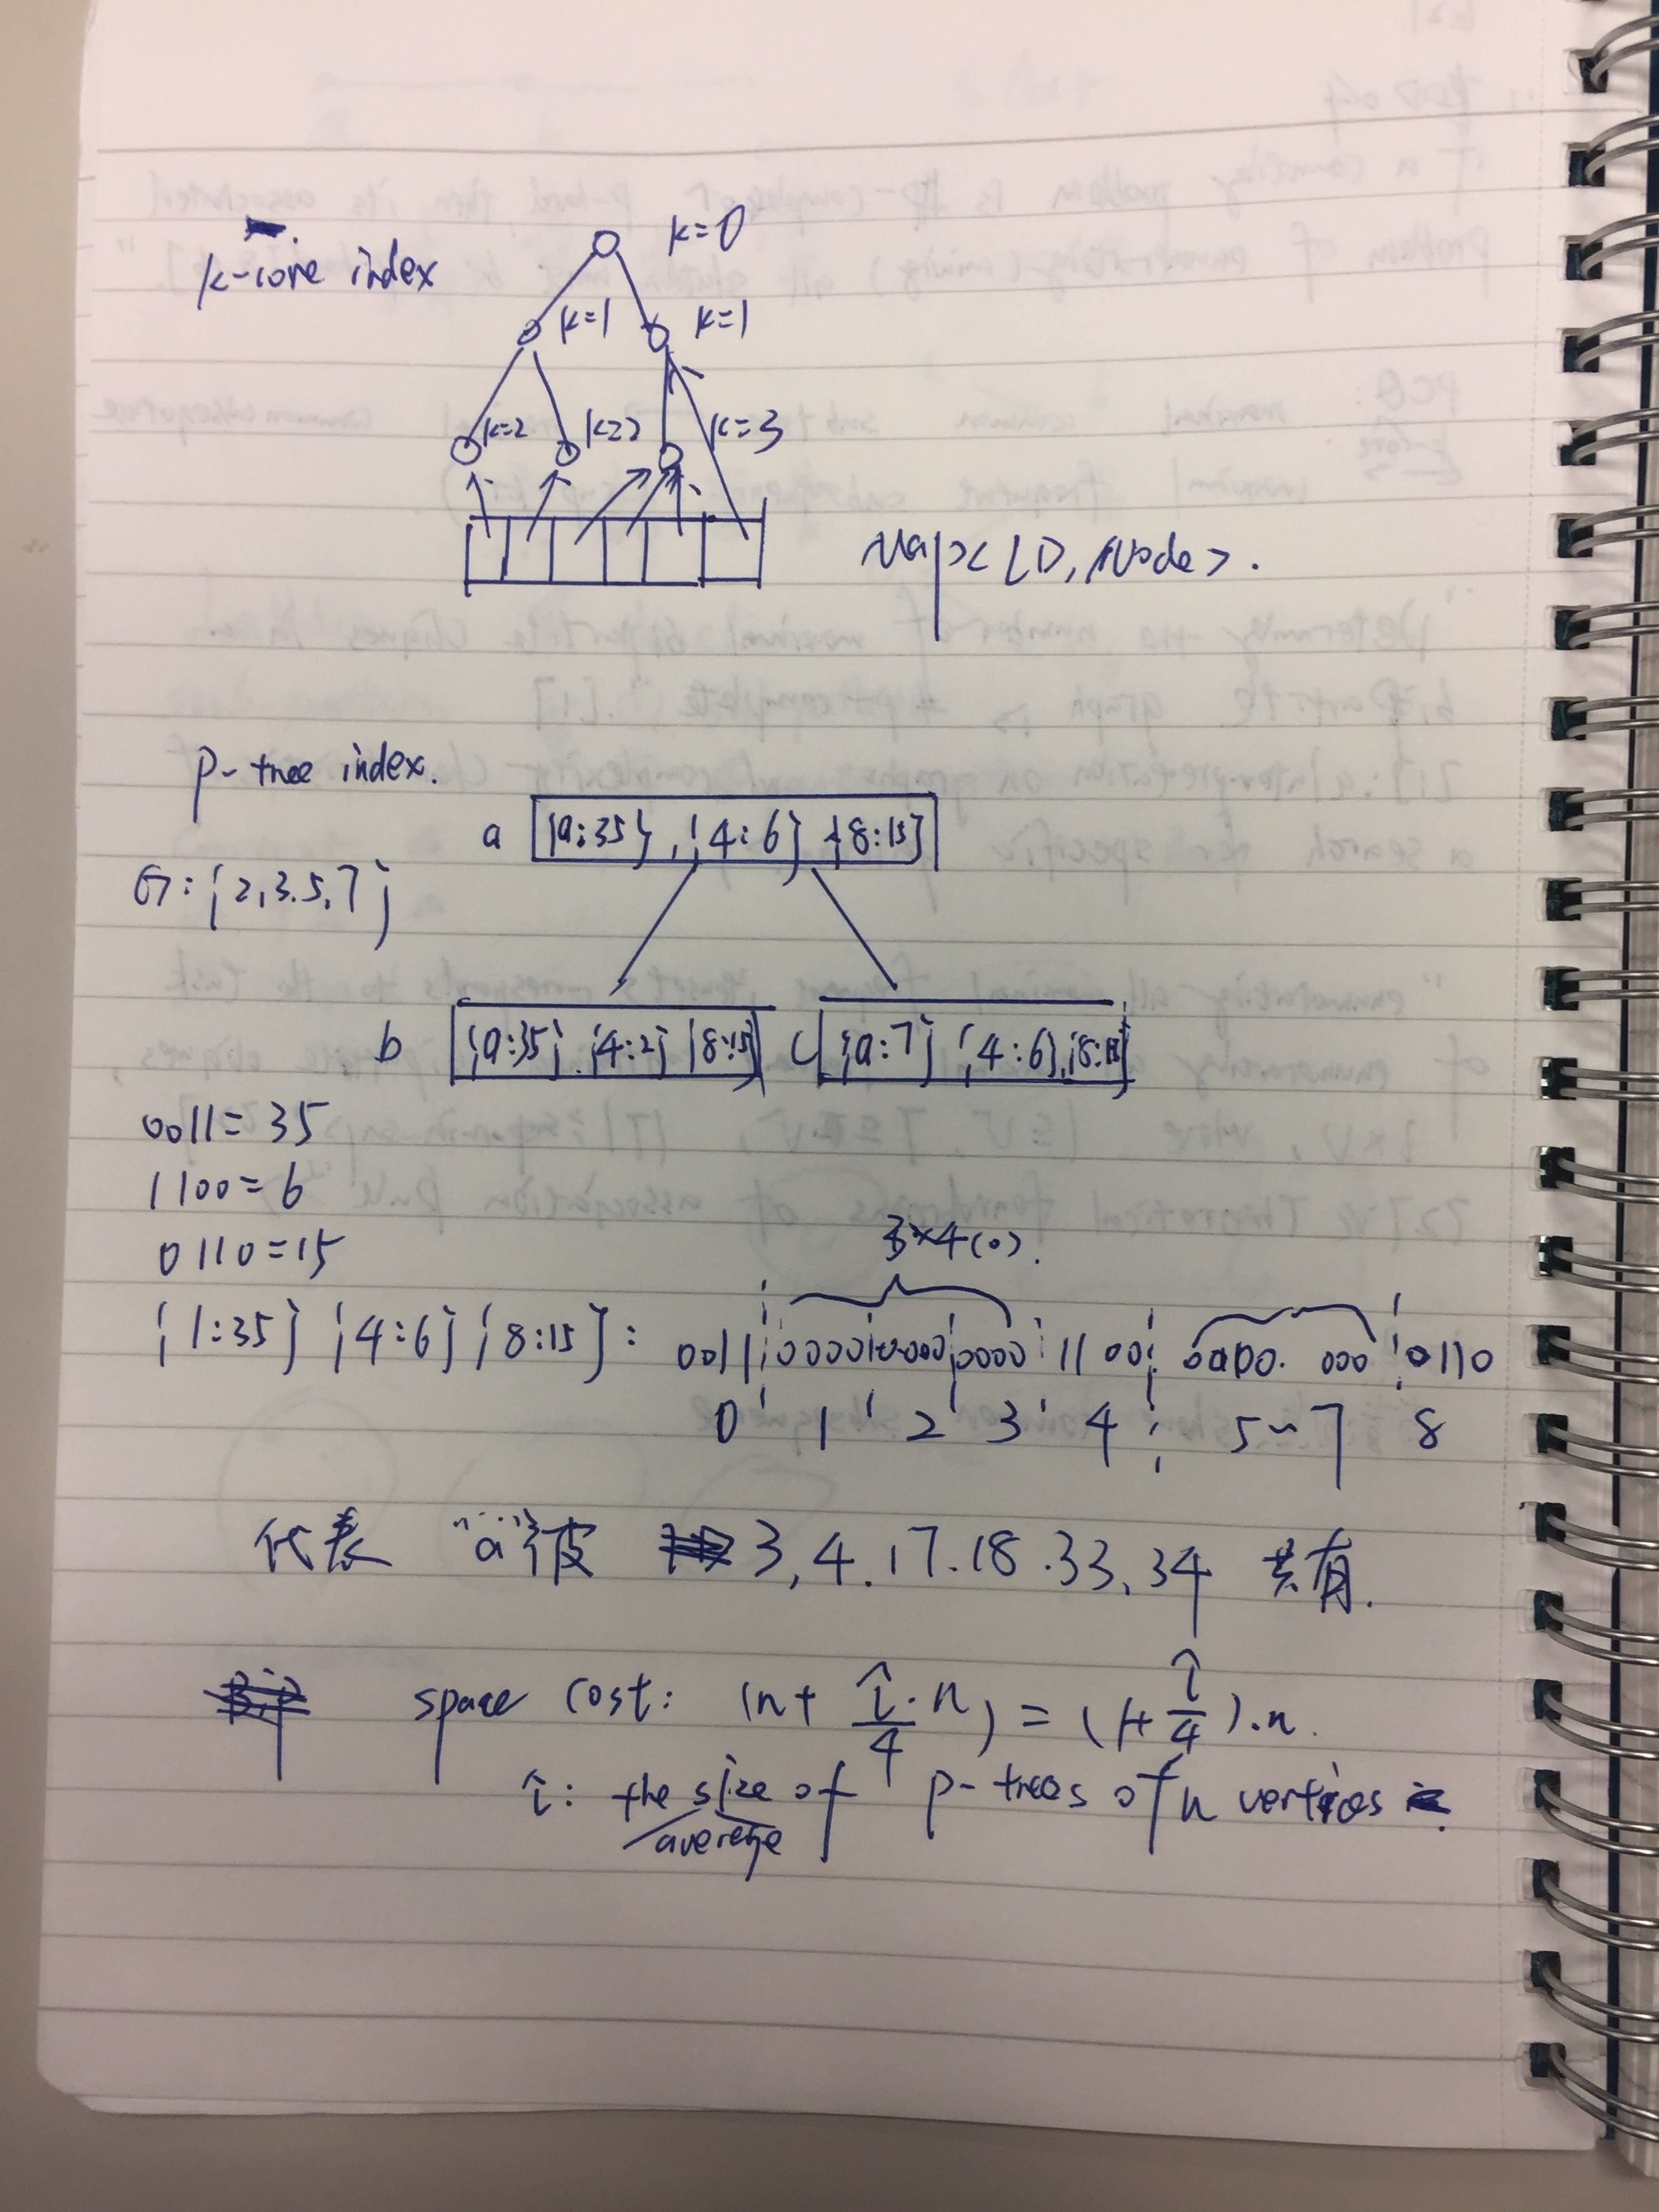 k-core index
k=0
k=1 k=1
k=2 k=2 k=3
Map<ID, Node>.
p-tree index.
a {a:35}, {4:6} {8:15}
G: {2,3.5,7}
b {a:35}. {4:2} {8:15} c {a:7} {4:6}, {8:15}
0011=35
1100=6
0110=15
3×4(0).
{1:35} {4:6} {8:15}: 0011 0000 0000 0000 1100 0000. 000 0110
0 1 2 3 4 5~7 8
代表 "a" 被 3, 4. 17. 18. 33. 34 共有.
space cost: (n+ î/4 · n) = (1+ î/4).n.
î: the size of p-trees of n vertices
average